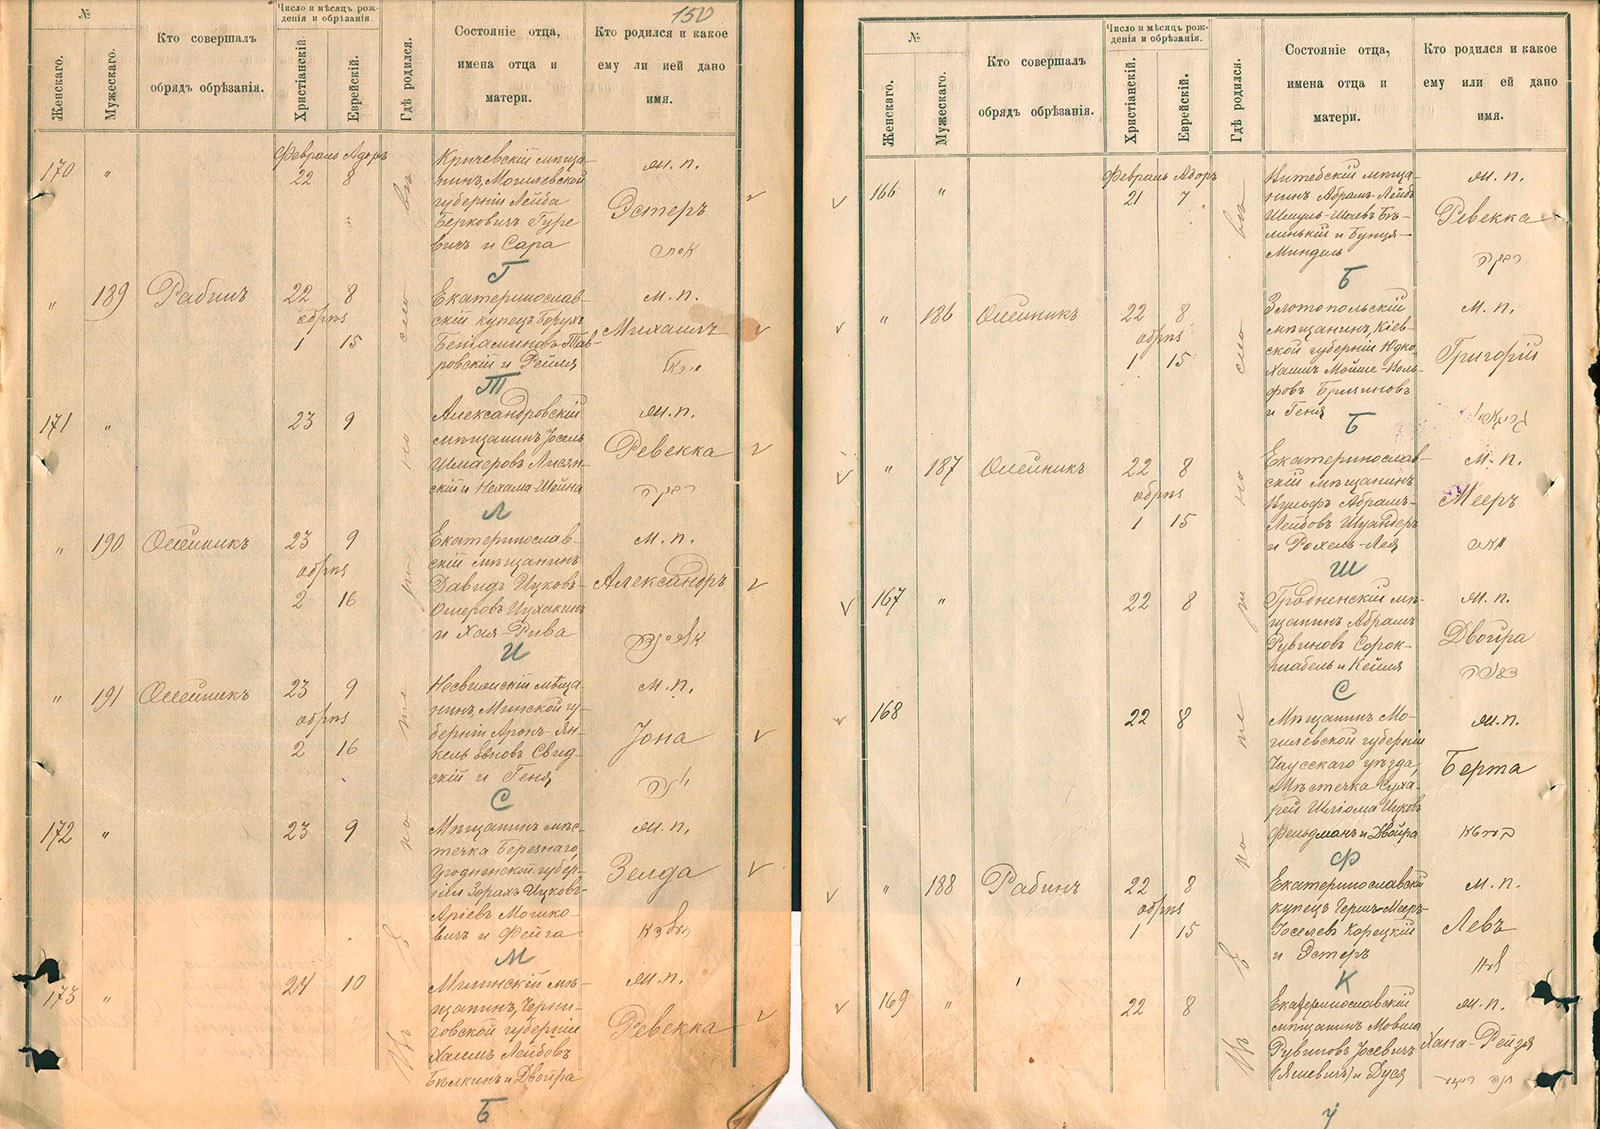 150
№
Женскаго.
Мужескаго.
Кто совершалъ
обрядъ обрѣзанія.
Число и мѣсяцъ рож-
денія и обрѣзанія
Христіанскій.
Еврейскій.
Гдѣ родился.
Состояніе отца,
имена отца и
матери.
Кто родился и какое
ему ли ией дано
имя.
Февраль Адоръ
170
"
22
8
Кричевскій мѣща-
нинъ, Могилевской
губерніи Лейба
Берковичъ Гуре
вичъ и Сара
ж. п.
Эстеръ
אסתר
Г
"
189
Рабинъ
22
8
обрѣз
1
15
Екатеринослав-
скій купецъ Борухъ
Беніаминовъ Тав-
ровскій и Рейля
м. п.
Михаилъ
Т
171
"
23
9
Александровскій
мѣщанинъ Іосель
Шмаеровъ Лисян-
скій и Нехама-Шейна
ж. п.
Ревекка
רבקה
Л
"
190
Олейникъ
23
9
обрѣз
2
16
Екатеринослав-
скій мѣщанинъ
Давидъ Ицковъ-
Ошеровъ Ицхакинъ
и Хая-Рива
м. п.
Александръ
И
"
191
Олейникъ
23
9
обрѣз
2
16
Несвижскій мѣща-
нинъ, Минской гу-
берніи Аронъ-Ян-
кель Свид-
скій и Геня
м. п.
Іона
יונה
С
172
"
23
9
Мѣщанинъ мѣс-
течка Березнаго,
Гродненской губер-
ніи Зорахъ Ицковъ-
Аріевъ Мошко-
вичъ и Фейга
ж. п.
Зелда
М
173
"
24
10
Мглинскій мѣ-
щанинъ, Черни-
говской губерніи
Хаимъ Лейбовъ
Бѣлкинъ и Двойра
ж. п.
Ревекка
Б
№
Женскаго.
Мужескаго.
Кто совершалъ
обрядъ обрѣзанія.
Число и мѣсяцъ рож-
денія и обрѣзанія.
Христіанскій.
Еврейскій.
Гдѣ родился.
Состояніе отца,
имена отца и
матери.
Кто родился и какое
ему или ей дано
имя.
Февраль Адоръ
166
"
21
7
Витебскій мѣща-
нинъ Абрамъ-Лейбъ
Бѣ-
линькій и Бунця-
Миндель
ж. п.
Ревекка
רבקה
Б
"
186
Олейникъ
22
8
обрѣз
1
15
Златопольскій
мѣщанинъ, Кіев-
ской губерніи Юдко-
Хаимъ Мойше-Воль-
фовъ
и Геня
м. п.
Григорій
Б
"
187
Олейникъ
22
8
обрѣз
1
15
Екатеринослав-
скій мѣщанинъ
Вульфъ Абрамъ-
Лейбовъ
и Рохель-Лея
м. п.
Мееръ
מאיר
Ш
167
"
22
8
Гродненскій мѣ-
щанинъ Абрамъ
Рувиновъ Сорок-
и Кейля
ж. п.
Двойра
דבורה
С
168
22
8
Мѣщанинъ Мо-
гилевской губерніи
Чаусскаго уѣзда,
Мѣстечка Суха-
рей Шлiома Ицковъ
Фельдманъ и Двойра
ж. п.
Берта
Ф
"
188
Рабинъ
22
8
обрѣз
1
15
Екатеринославскій
купецъ Гершъ-Мееръ-
Іоселевъ Корецкій
и Эстеръ
м. п.
Левъ
К
169
"
22
8
Екатеринославскій
мѣщанинъ Мовша
Рувиновъ Іосевичъ
(Яшевичъ) и Дуся
ж. п.
Хана-Рейзя